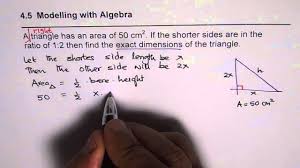 4.5 Modelling with Algebra
right
A triangle has an area of 50 cm². If the shorter sides are in the
ratio of 1:2 then find the exact dimensions of the triangle.
Let the shortes side length be x
Then the other side will be 2x
Area△ = ½ base. height
50 = ½ x.
2x
h
x
A = 50 cm²